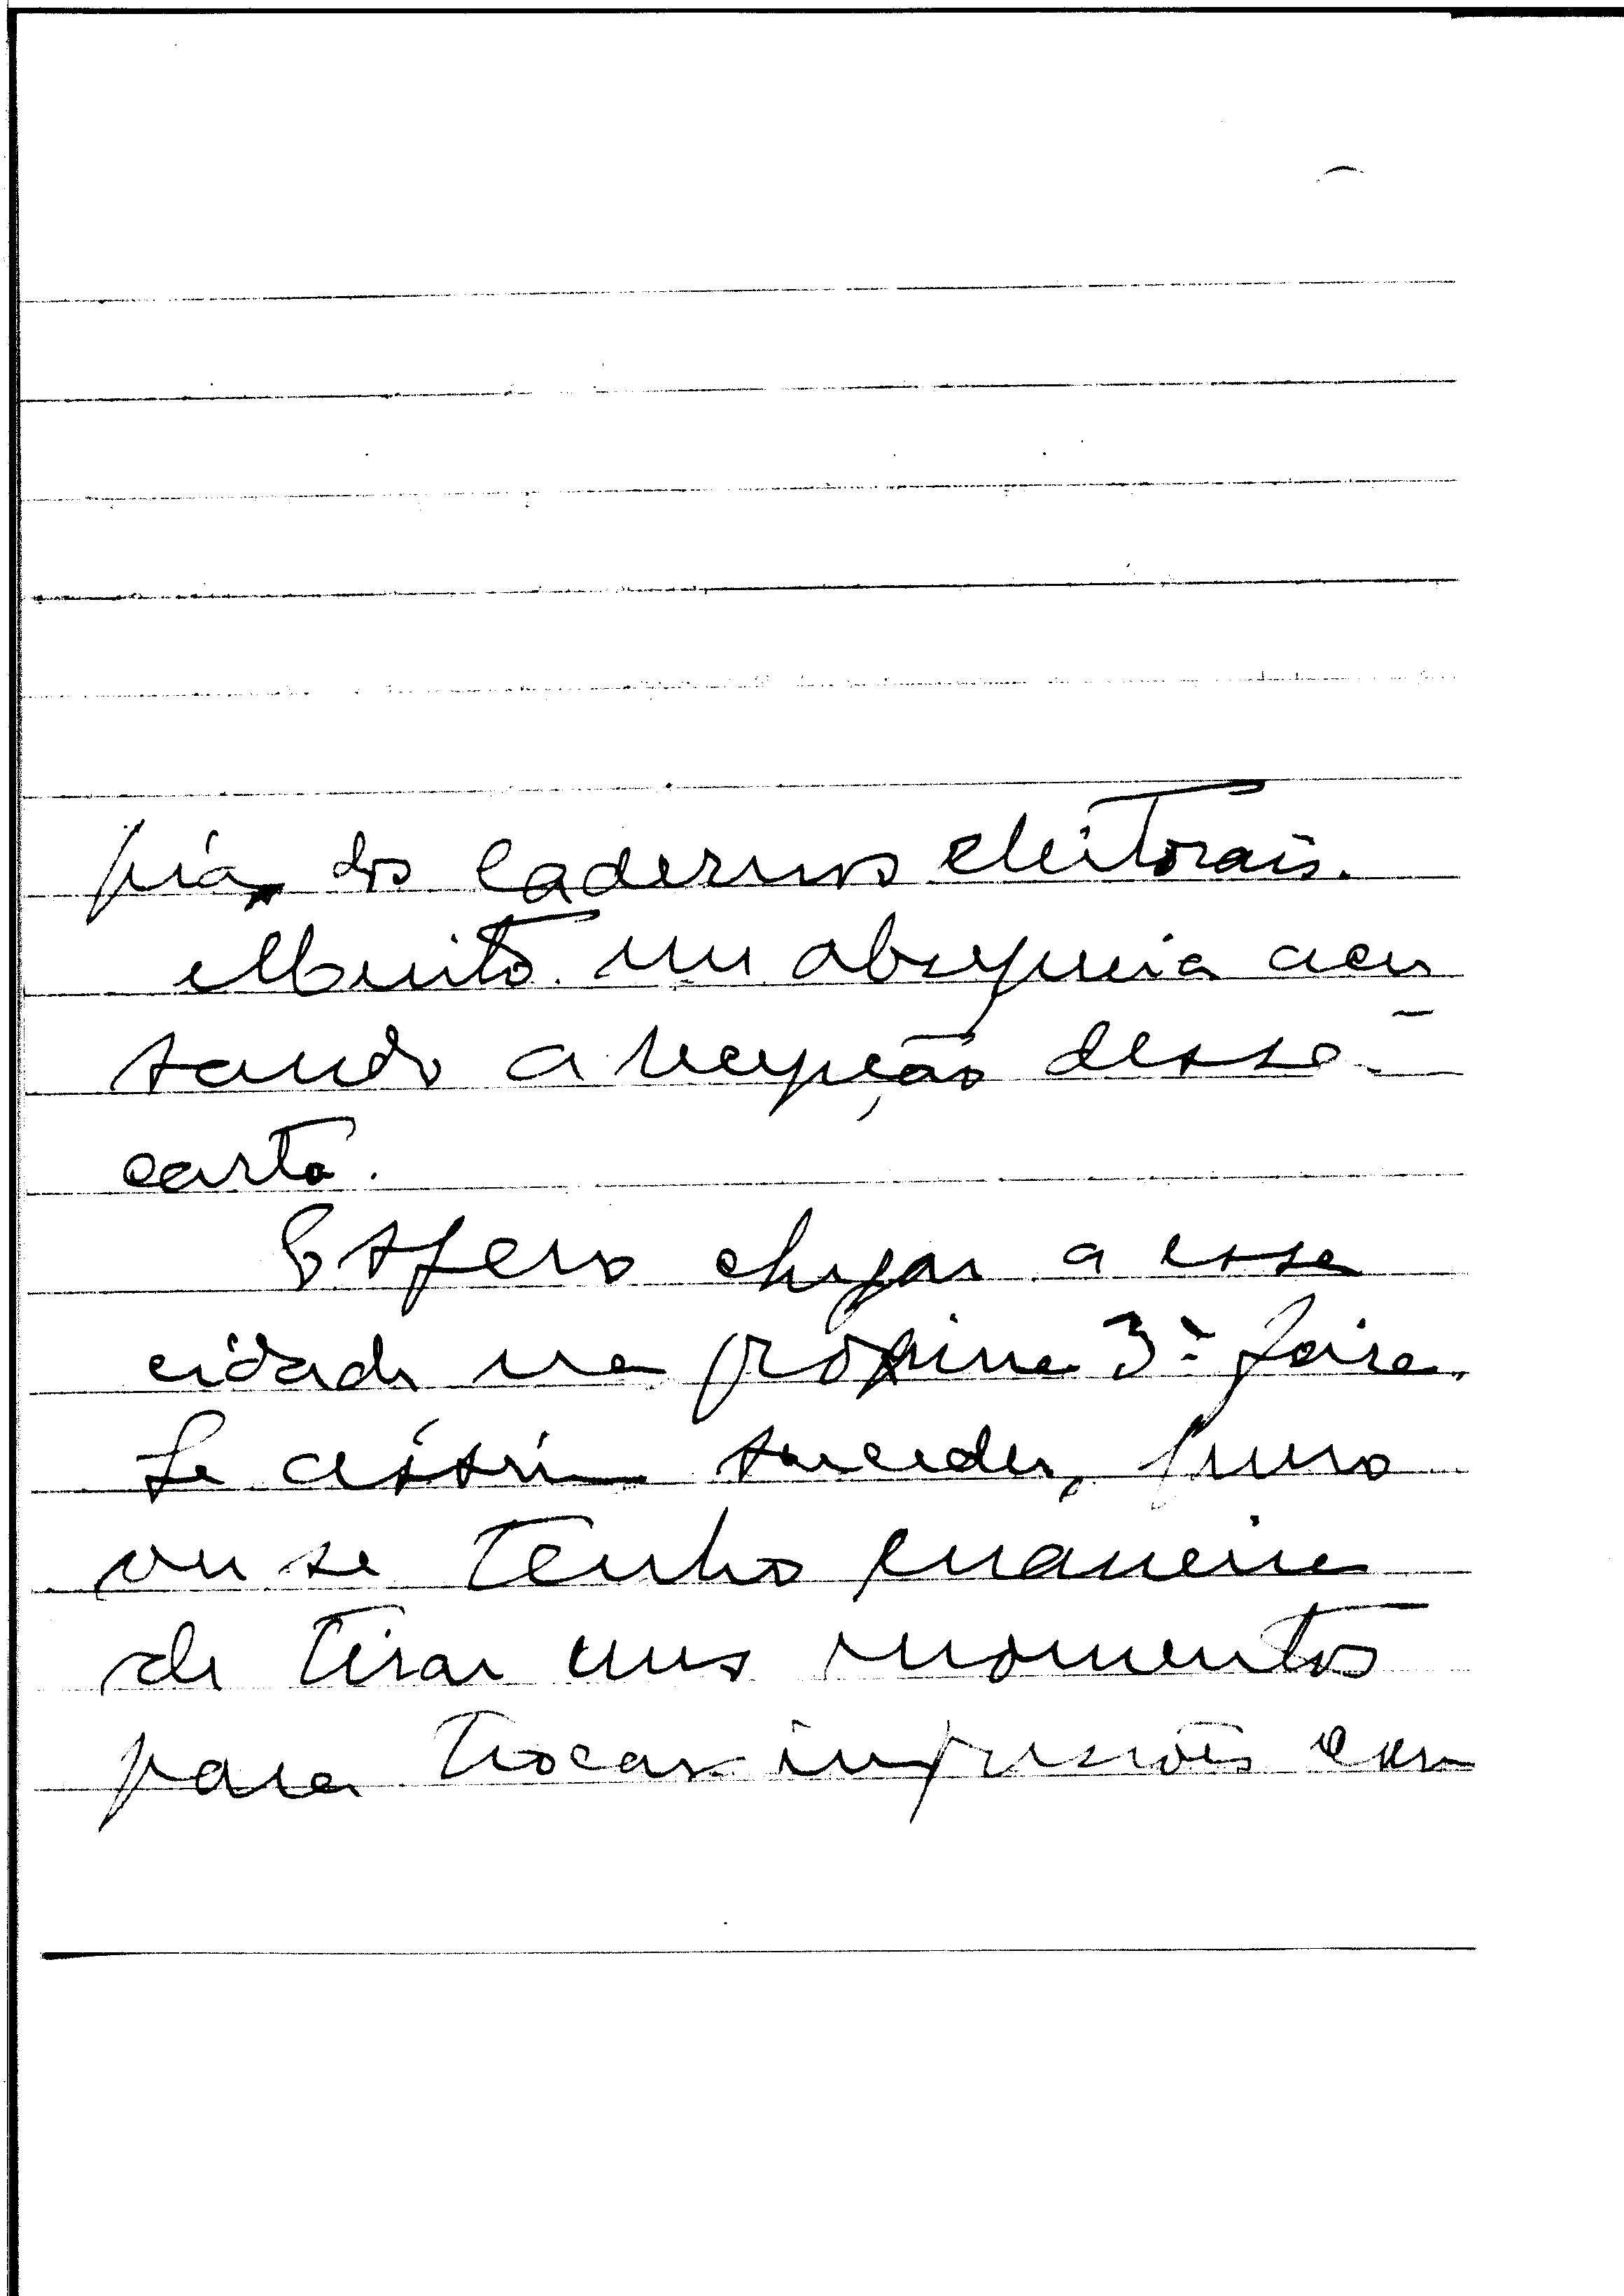 pia dos cadernos eleitorais.
Muito me obsequeia acu
sando a recepção dessa
carta.
Espero chegar a essa
cidade na próxima 3ª feira.
Se assim suceder,
vu se tenho maneira
de tirar uns momentos
para trocar impressões com